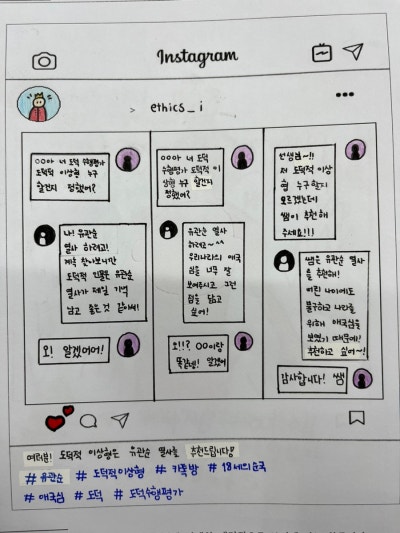 Instagram
ethics_i
OO아 너 도덕 수행평가
도덕적 이상형 누구
할건지 정했어?
나! 유관순
열사 하려고!
계속 찾아보니깐
도덕적 인물은 유관순
열사가 제일 기억
남고 좋은 것 같아서!
오! 알겠어어!
OO아 너 도덕
수행평가 도덕적 이
상형 누구 할건지
정했어?
유관순 열사
하려고~^^
우리나라의 애국
심을 너무 잘
보여주시고 그런
점을 닮고
싶어!
오!!? OO이랑
똑같넹! 알겠어
선생님~!!
저 도덕적 이상
형 누구 할지
모르겠는데
쌤이 추천해
주세요!!!
쌤은 유관순 열사
을 추천해!
어린 나이에도
불구하고 나라를
위해 애국심을
보였기 때문에!
추천하고 싶어~!
감사합니다! 쌤
여러분! 도덕적 이상형은 유관순 열사를 추천드립니다!
# 유관순 # 도덕적이상형 # 카톡방 # 18세의순국
# 애국심 # 도덕 # 도덕수행평가